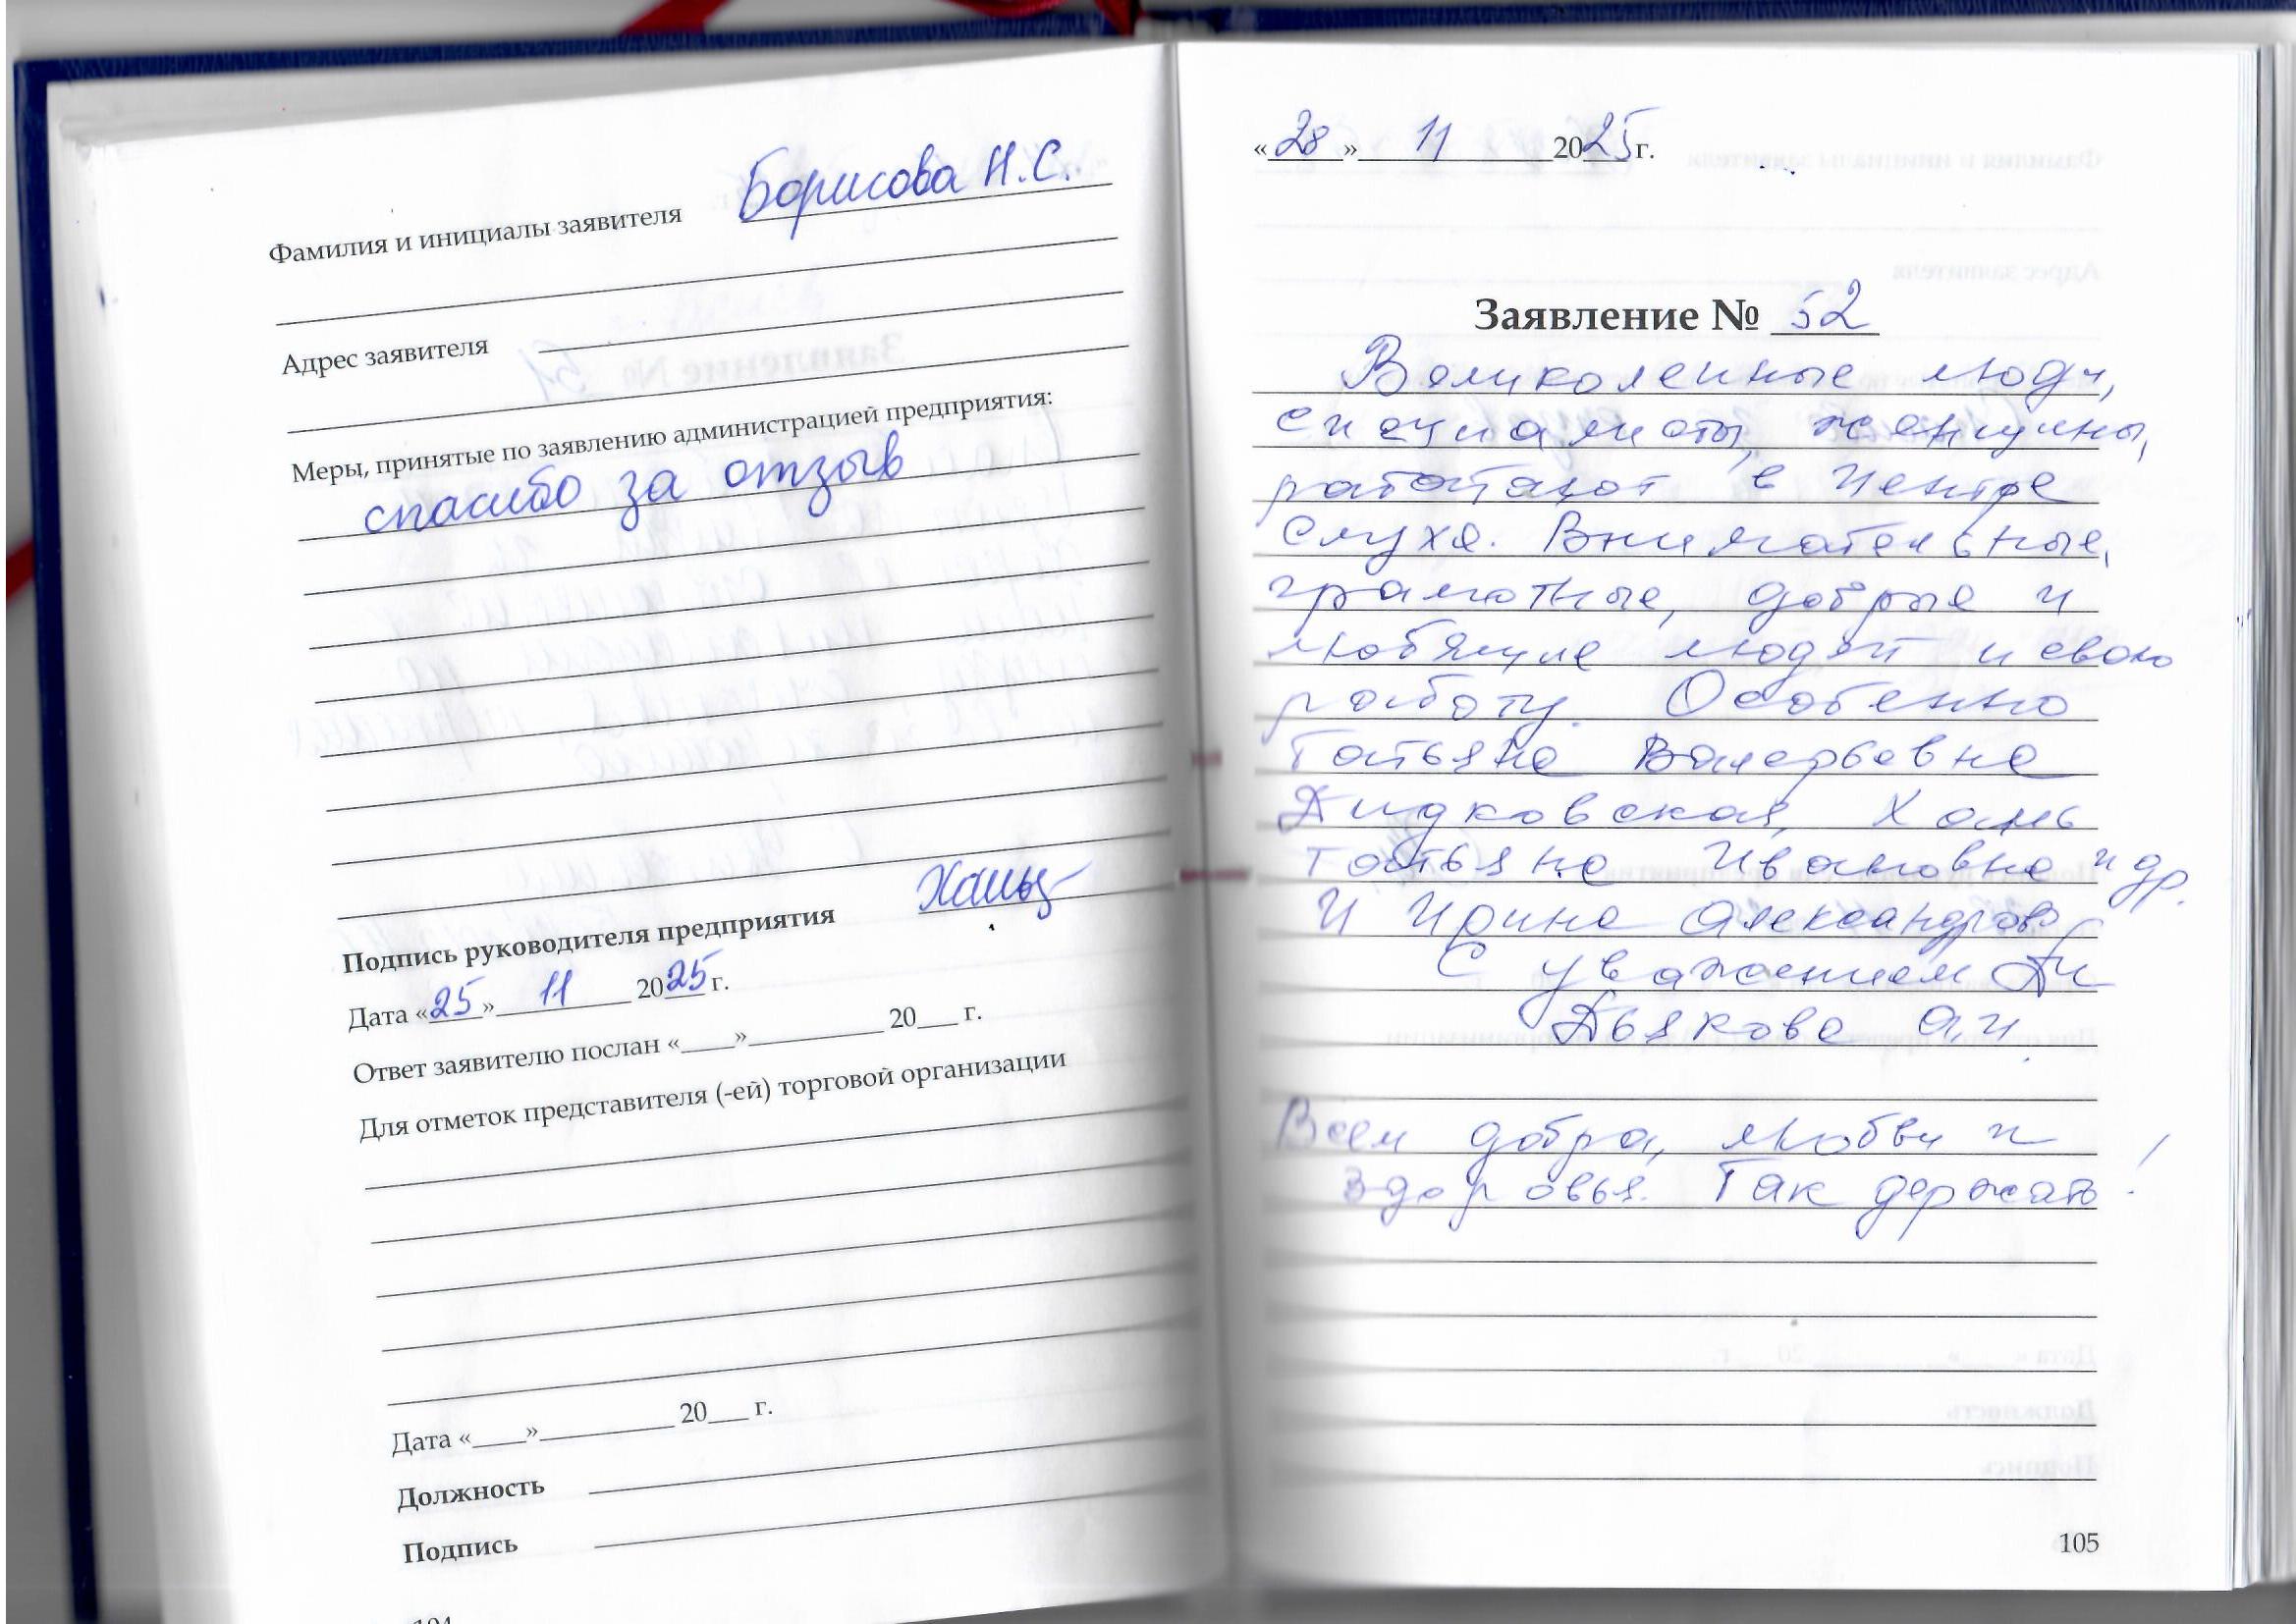 Фамилия и инициалы заявителя Борисова Н.С.
Адрес заявителя
Меры, принятые по заявлению администрацией предприятия:
спасибо за отзыв
Подпись руководителя предприятия
Дата «25» 11 2025 г.
Ответ заявителю послан «____»__________ 20___ г.
Для отметок представителя (-ей) торговой организации
Дата «____»__________ 20___ г.
Должность
Подпись
«28» 11 2025 г.
Заявление № 52
Великолепные люди,
специалисты, женщины,
работают в Центре
слуха. Внимательные,
грамотные, добрые и
любящие людей и свою
работу. Особенно
Татьяна Валерьевна
Дидковская, Хань
Татьяна Ивановна и др.
И Ирина Александров
С уважением
Дьякова А.И.
Всем добра, любви и
здоровья. Так держать!
105